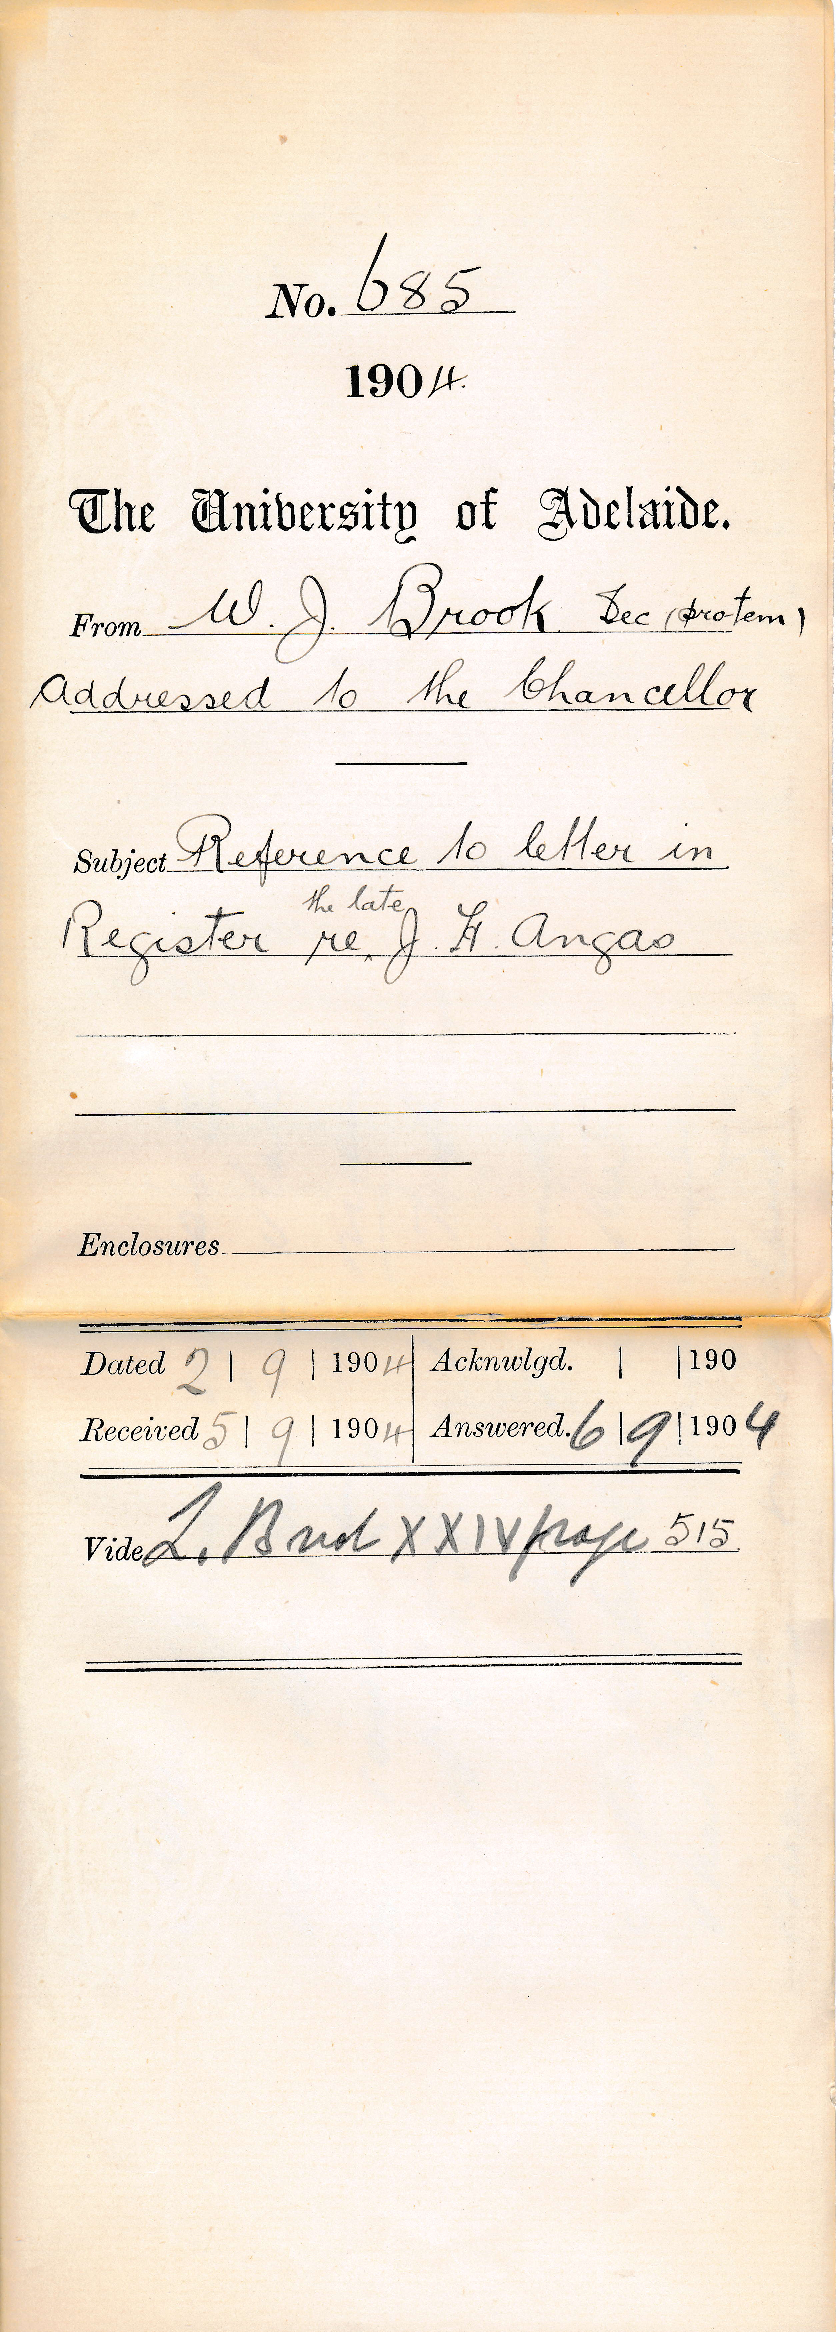 No. 685
1904.
The University of Adelaide.
From W. J. Brook Sec (protem)
Addressed to the Chancellor
Subject Reference to letter in
the late
Register re. J. H. Angas
Enclosures
Dated 2 | 9 | 1904 Acknwlgd. | | 190
Received 5 | 9 | 1904 Answered. 6 | 9 | 1904
Vide L. B vol XXIV page 515